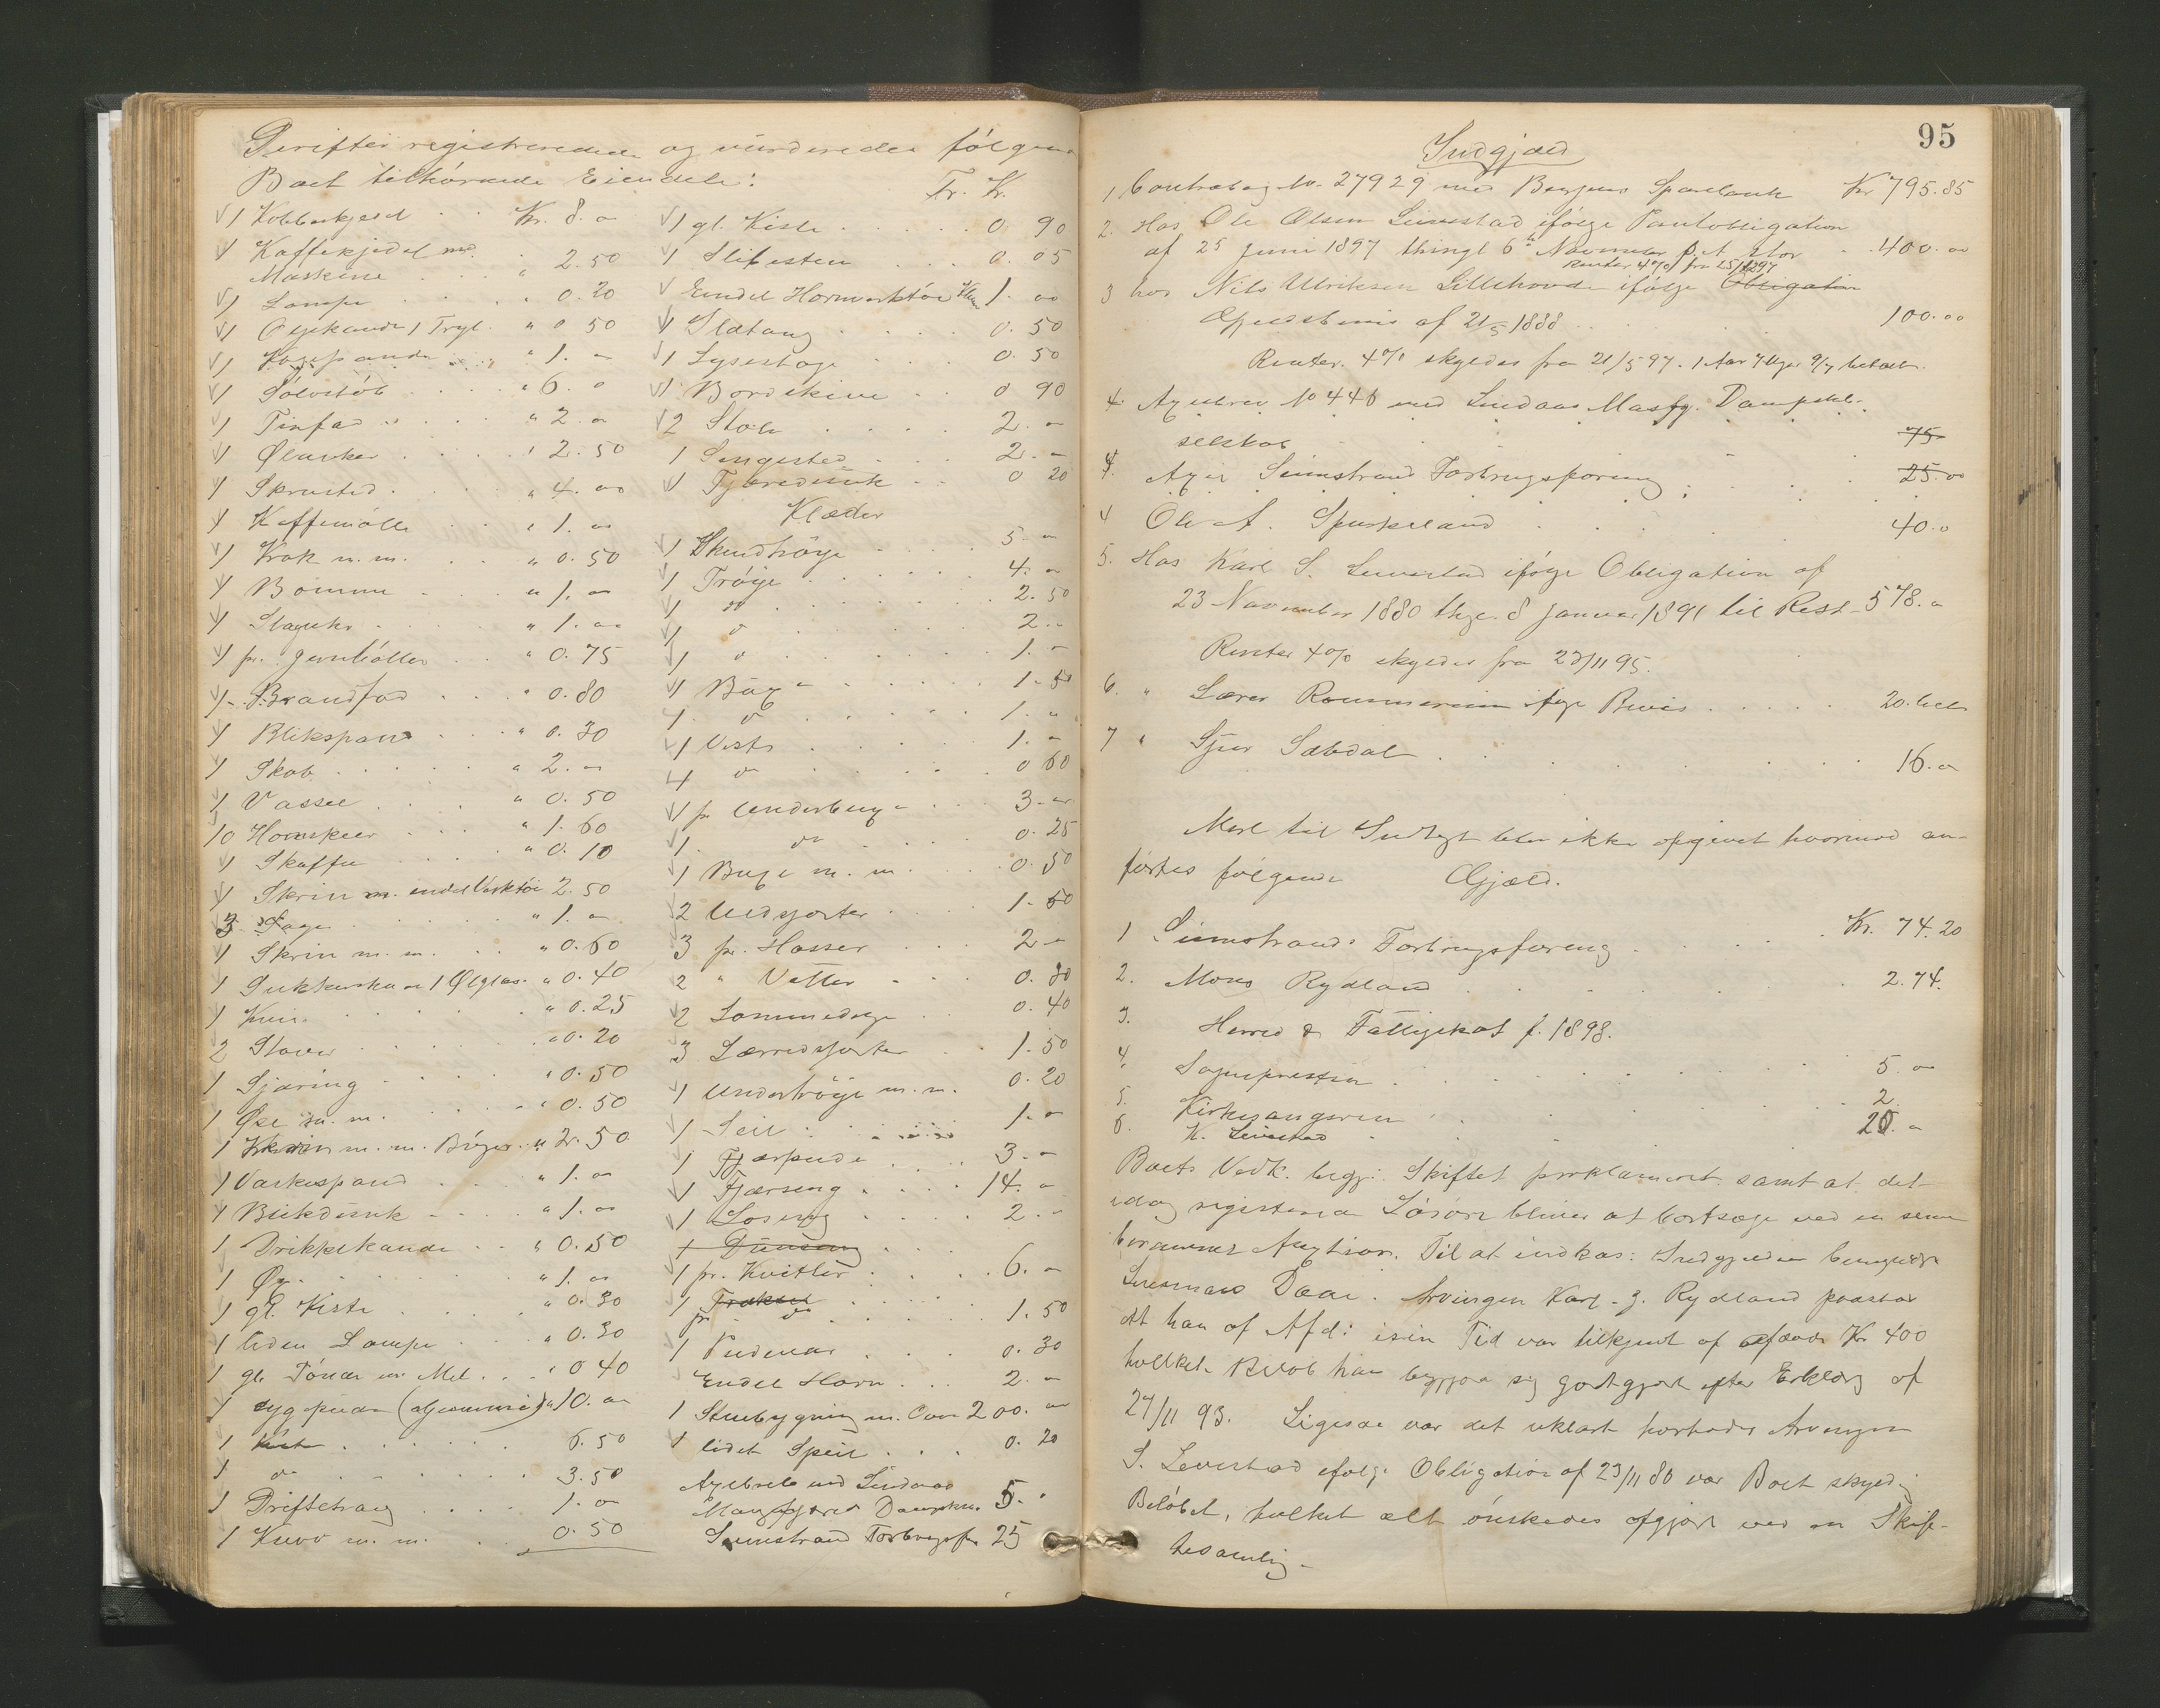 Derefter registreredes og vurderedes følgende
Boet tilhörende Eiendele:
1 Kobberkjedel Kr. 8. "
1 Kaffekjedel m.
Maskine " 2.50
1 Lampe " 0.20
1 Oljekande 1 Tragt. " 0 50
1 " 1. "
1 Sölvstöb " 6. "
1 Tinfad " 2. "
1 Ølanker " 2.50
1 Skrusted " 4. oo
1 Kaffemölle " 1. oo
1 Krok m. m. " 0.50
1 Bömme " 1. oo
1 " 1. oo
1 pr. " 0.75
1 Brandfad " 0.80
1 Blikspand " 0.30
1 Skab " 2. oo
1 Vassel " 0.50
10 Hornskeer " 1.60
1 Skaffe " 0.10
1 Skrin m. endel Verktöi 2.50
3 Sage " 1. "
1 Skrin m. m. " 0.60
1 Sukkerskaal 1 Ølglas " 0.40
1 " 0.25
2 Staver " 0.20
1 Sjæring " 0.50
1 Øse m. m. " 0.50
1 Skrin m. m. Böger " 2.50
1 Vaskespand " 1. oo
1 Blikdunk " 1. oo
1 Drikkekande " 0.50
1 Øx " 1. oo
1 gl. Kiste " 0.30
1 liden Lampe " 0.30
1 gl. Tönde m. Mel " 0 40
1 10. oo
1 Kiste 6.50
1 do 3.50
1 Driftetraug 1. oo
1 Kurv m. m. 0.50
Tr. Kr.
1 gl. Kiste 0 90
1 Slibesten 0.05
Endel Hornverktöi 1. oo
1 Sladtang 0.50
1 Lysestage 0.50
1 Bordskive 0 90
2 Stole 2. "
1 Sengested 2. "
1 Tjæredunk 0 20
Klæder
1 Skindtröje 5. "
1 Tröje 4. "
1 do 2.50
1 do 2. "
1 do 1. "
1 Buxe 1.50
1 do 1. "
1 Vest 1. "
1 do 0 60
1 pr Underbuxe 3. "
1 do 0.25
1 Buxe m. m. 0.50
2 Uldsjorter 1.50
3 pr. Hasser 2 "
2 " Votter 0.30
2 Lommeduge 0.40
3 Lærredsjorter 1.50
1 Undertröje m. m. 0.20
1 Seil 1. "
1 Fjærpude 3. "
1 Fjærseng 14. "
1 2. "
1 Duneseng
1 pr. Kvitler 6. "
1 pr. do 1.50
1 Pudevar 0.30
Endel Horn 2. "
1 Stuebygning m. Ovn 200. oo
1 lidet Speil 0.20
Axebrev med Lindaas
Masfjord Dampsk. 5. "
Seimstrand Forbrugsfor 25
95
Indgjæld
1 Contrabog No. 27929 med Bergens Sparebank Kr 795.85
2. Hos Ole Olsen Leirestad ifölge Pantobligation
af 25 Juni 1897 thingl 6te November D. A. stor 400.oo
Renter 4% fra 25/12 97
3 hos Nils Ulriksen Lillehovde ifölge Obligation
Gjeldsbevis af 21/5 1888 100.oo
Renter. 4% skyldes fra 21/5 97. 1 Aar betalt.
4. Axebrev No 446 med Lindaas Masfj. Dampskib-
selskab 75
4. Axie Seimstrand Forbrugsforening 25.oo
4 Ole A. Spurkeland 40.o
5. Hos Karl S. Leirestad ifölge Obligation af
23 November 1880 thgl. 8 Januar 1891 til Rest 578. "
Renter 4% skyldes fra 23/11 95.
6. " Lærer ifölge Bevis 20.
7 " Sjur Sæbdal 16. "
Mere til Indtægt blev ikke opgivet hvorimod an-
förtes fölgende Gjæld.
1 Seimstrands Forbrugsforening Kr. 74.20
2. Mons Rydland 2.74.
3. Herred & Fattigskat f. 1898.
4. Sognepresten 5. oo
5. Kirkesangeren 2
6. K. Leirestad 20. "
Boets Vedk. begj. Skiftet proklameret samt at det
idag registrerede Lösöre bliver at bortsælge ved en senere
berammet Auktion. Til at indkas: Indgjælden bemyndiges
Lensmand Daae. Arvingen Karl J. Rydland paastod
at han af Afd: i sin Tid var tilkjent af Kr 400
hvilket Belöb han begjærer sig godtgjort efter Erklæring af
27/11 93. Ligesaa var det uklart hvorledes Arvingen
S. Leirestad ifölge Obligation af 23/11 80 var Boet skyldig
Belöbet, hvilket alt önskedes afgjort ved en Skifte-
samling.